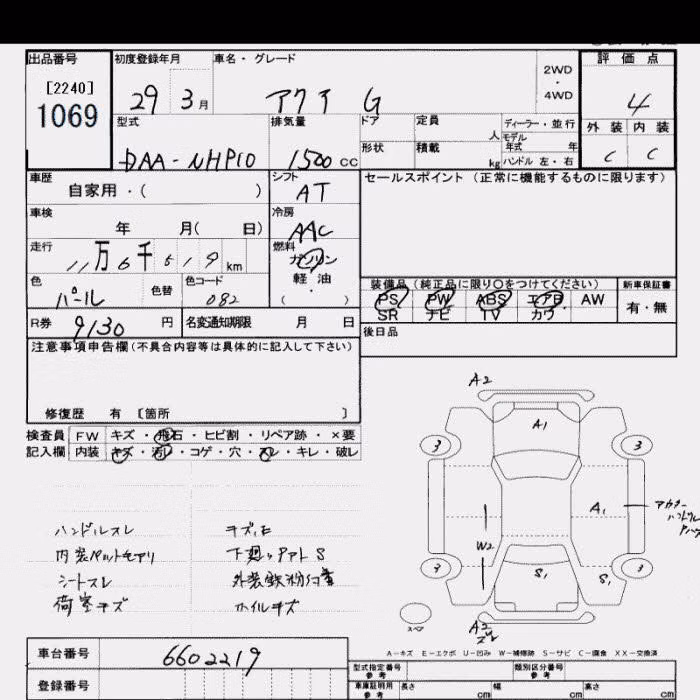 出品番号 初度登録年月 車名・グレード 評価点
[2240]
1069
29 3月 アクア G 2WD・4WD 4
型式 排気量 ドア 定員 人 ディーラー・並行 外装 内装
モデル年式 年
DAA-NHP10 1500cc 形状 積載 kg ハンドル 左・右 C C
車歴 シフト セールスポイント (正常に機能するものに限ります)
自家用・( ) AT
車検 冷房
年 月( 日) AAC
走行 燃料
11万6千519km ガソリン
軽油
色 色替 色コード 装備品 (純正品に限り○をつけてください) 新車保証書
パール 082 ( ・ ) PS PW ABS エアB AW 有・無
SR ナビ TV カワ
R券 9130円 名変通知期限 月 日 後日品
注意事項申告欄(不具合内容等は具体的に記入して下さい)
修復歴 有 [箇所 ]
検査員 FW キズ・飛石・ヒビ割・リペア跡・×要
記入欄 内装 キズ・汚レ・コゲ・穴・スレ・キレ・破レ
A2
A1
3 3
A1
W2
3 S1 S1 3
スペア
A2
ハンドルスレ
シートスレ
荷室キズ
下廻りアトS
ホイルキズ
A-キズ E-エクボ U-凹み W-補修跡 S-サビ C-腐食 XX-交換済
車台番号 6602219
登録番号
型式指定番号 参考 類別区分番号 参考
車庫証明用 参考 長さ cm 幅 cm 高さ cm